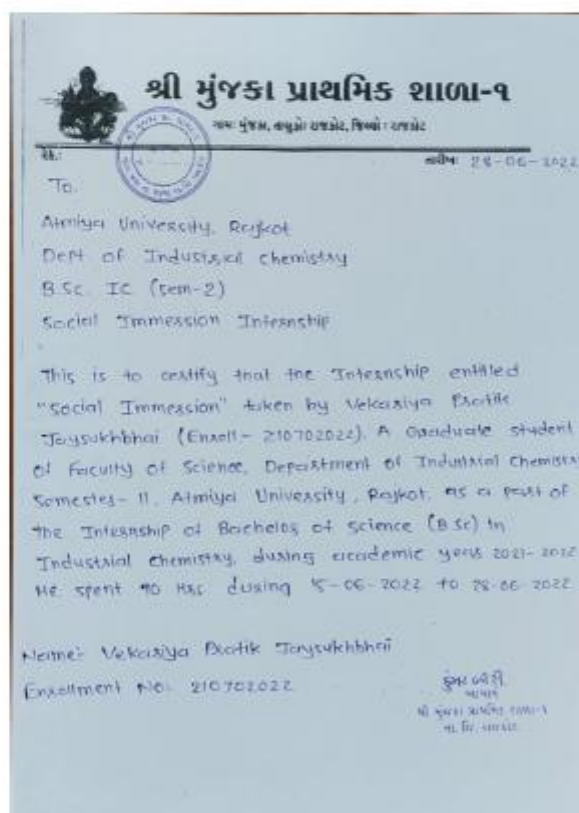 શ્રી મુંજકા પ્રાથમિક શાળા-૧
ગામઃ મુંજકા, તાલુકોઃ રાજકોટ, જિલ્લોઃ રાજકોટ
રેફ.:
તારીખઃ 28-06-2022
To.
Atmiya University, Rajkot
Dept of Industrial Chemistry
B.Sc. IC (Sem-2)
Social Immession Internship
This is to certify that the Internship entitled
"Social Immession" taken by Vekariya Pratik
Jaysukhbhai (Enroll- 210702022). A Graduate student
of Faculty of Science, Department of Industrial Chemistry
Semester- II, Atmiya University, Rajkot, as a part of
the Internship of Bachelor of Science (B.Sc) In
Industrial Chemistry, during academic year 2021-2022
He spent 90 Hrs during 15-06-2022 to 28-06-2022
Name:- Vekariya Pratik Jaysukhbhai
Enrollment No:- 210702022
આચાર્ય
શ્રી મુંજકા પ્રાથમિક શાળા-૧
તા. જિ. રાજકોટ